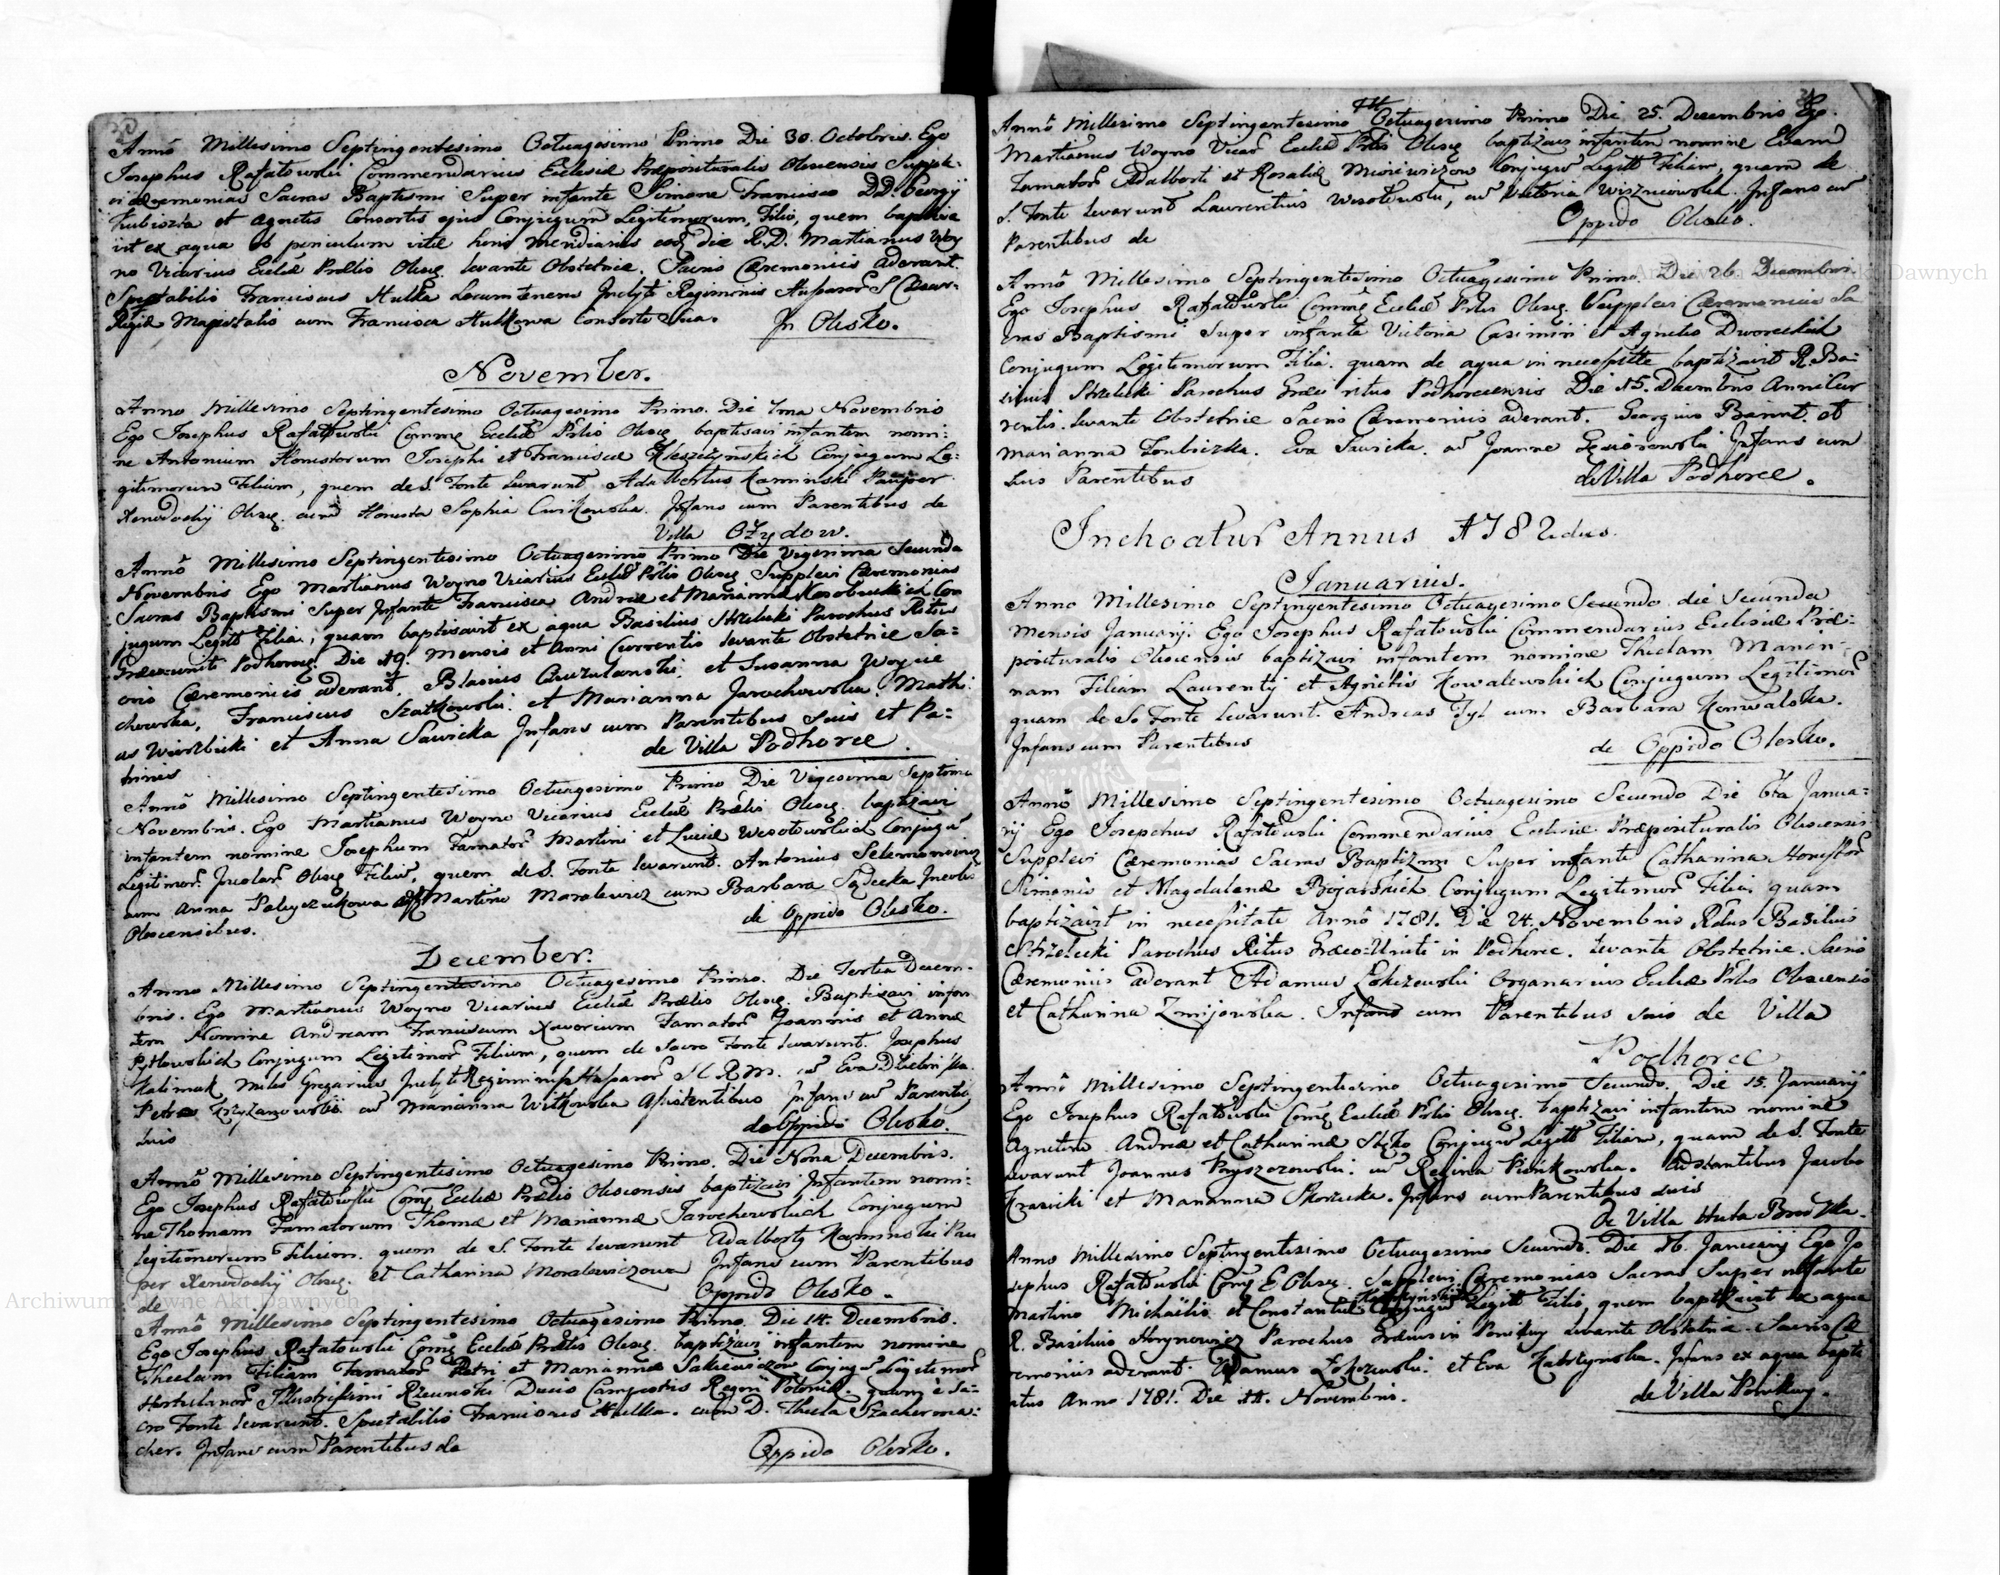 Anno Millesimo Septingentesimo Octuagesimo Primo Die 30. Octobris. Ego
Josephus Rafatowski Commendarius Ecclesiæ Præpositurralis Olescensis Supple-
vi Ceremonias Sacras Baptismi Super infante Simone Francisco DD. Georgij
et Agnetis Consortis ejus Conjugum Legitimorum, Filio, quem baptiza
vit ex aqua ob periculum vitæ horis meridianis eod die R.D. Martianus Woy
no Vicarius Eccliæ Prælis Olesq. levante Obstetrice. Sacris Ceremoniis aderant.
Spectabilis Franciscus Hulka Locumtenens Inclyti Regiminis S. Cæsar-
Regiæ Majestatis cum Francisca Hulkowa Consorte Sua. In Olesko.
November.
Anno Millesimo Septingentesimo Octuagesimo Primo. Die 1ma Novembris
Ego Josephus Rafatowski Comme Eccliæ Prælis Olesq. baptisavi infantem nomi-
ne Antonium Honestorum Josephi et Franciscæ Conjugum Le-
gitimorum Filium, quem de S. Fonte levarunt Adalbertus Kaminski Pauper
Xenodochij Olesq. cum Honesta Sophia Infans cum Parentibus de
Villa Ożydow.
Anno Millesimo Septingentesimo Octuagesimo Primo Die Vigesima Secunda
Novembris Ego Martianus Woyno Vicarius Eccliæ Prlis Olesq. Supplevi Ceremonias
Sacras Baptismi Super Infante Francisca Andreæ et Mariannæ Con
jugum Legitt Filia, quam baptisavit ex aqua Basilius Strzelecki Parochus Ritus
Græco-unit Podhorcq. Die 19. Mensis et Anni Currentis levante Obstetrice Sa-
cris Ceremoniis aderant. Blasius et Susanna
Franciscus Szatkowski et Marianna Jarochowska. Math
as Wierzbicki et Anna Sawicka Infans cum Parentibus Suis et Pa-
trinis de Villa Podhorce
Anno Millesimo Septingentesimo Octuagesimo Primo Die Vigesima Septima
Novembris. Ego Martianus Woyno Vicarius Eccliæ Prælis Olesq. baptizavi
infantem nomine Josephum Famator Martini et Luciæ Wesotowskich Conjugũ
Legitimor Incolar Olesq Filiũ, quem de S. Fonte levarunt. Antonius
cum Anna Martino Moralewicz cum Barbara Incolis
Olescensibus. de Oppido Olesko.
December.
Anno Millesimo Septingentesimo Octuagesimo Primo. Die Tertia Decem-
bris. Ego Martianus Woyno Vicarius Eccliæ Prælis Olesq. Baptisavi infan
tem Nomine Andream Franciscum Xaverium Famator Joannis et Annæ
Pytlowskich Conjugum Legitimor Filium, quem de Sacro Fonte levarunt. Josephus
Kalimak Miles Gregarius Inclyti Regiminis S C R M. cũ Eva
Petro Krzyzanowski cũ Marianna Witkowska Assistentibus Infans cũ Parentibus
suis de Oppido Olesko.
Anno Millesimo Septingentesimo Octuagesimo Primo. Die Nona Decembris.
Ego Josephus Rafatowski Comq Eccliæ Prælis Olescensis baptizavi Infantem nomi-
ne Thomam Famatorum Thomæ et Mariannæ Jarochowskich Conjugum
legitimorum Filium. quem de S. Fonte levarunt Adalbertg Kaminski Pau
per Xenodochij Olesq. et Catharina Moralewiczowa Infans cum Parentibus
de Oppido Olesko.
Anno Millesimo Septingentesimo Octuagesimo Primo. Die 14. Decembris.
Ego Josephus Rafatowski Comq Eccliæ Prælis Olesq. baptizavi infantem nomine
Theclam Filiam Famator Petri et Mariannæ Conjug Legitimor
Hortulanor Illustrissimi Rzewuski Ducis Campestris Regni Poloniæ. quam e Sa-
cro Fonte levarunt. Spectabilis Franciscus Hulka. cum D. Thecla Szacherma-
cher. Infans cum Parentibus de Oppido Olesko.
Anno Millesimo Septingentesimo Octuagesimo Primo Die 25. Decembris Ego
Martianus Woyno Vicar Eccliæ Prlis Olesq baptizavi infantem nomine Evam
Famator Adalberti et Rosaliæ Conjugũ Legitt Filiam, quam de
S. Fonte levarunt Laurentius Wesotowski, cũ Victoria Wiszniowska. Infans cũ
Parentibus de Oppido Olesko.
Anno Millesimo Septingentesimo Octuagesimo Primo. Die 26. Decembris
Ego Josephus Rafatowski Commq Eccliæ Prlis Olesq. Supplevi Ceremonias Sa
cras Baptismi Super infante Victoria Casimiri et Agnetis Dworeckich
Conjugum Legitimorum Filia. quam de aqua in necessitte baptizavit R. Ba-
silius Strzelecki Parochus Græci ritus Podhorcensis Die 15. Decembris Anni Cur
rentis. levante Obstetrice Sacris Ceremoniis aderant. Georgius et
Marianna Eva Sawicka. cũ Joanne Infans cum
suis Parentibus de Villa Podhorce.
Inchoatur Annus 1782dus.
Januarius.
Anno Millesimo Septingentesimo Octuagesimo Secundo. die Secunda
mensis Januarij. Ego Josephus Rafatowski Commendarius Ecclesiæ Præ-
posituralis Olescensis baptizavi infantem nomine Theclam Marian-
nam Filiam Laurentij et Agnetis Kowalewskich Conjugum Legitimor
quam de So Fonte levarunt. Andreas Tyl cum Barbara Konwalska.
Infans cum Parentibus de Oppido Olesko.
Anno Millesimo Septingentesimo Octuagesimo Secundo Die 6ta Janua-
rij Ego Josephus Rafatowski Commendarius Ecclesiæ Præposituralis Olescensis
Supplevi Ceremonias Sacras Baptizmi Super infante Catharina Honestor
Simonis et Magdalenæ Bojarskich Conjugum Legitimor Filia, quam
baptizavit in necessitate Anno 1781. Die 24. Novembris Rdus Basilius
Strzelecki Parochus Ritus Græco-Uniti in Podhorce. levante Obstetrice. Sacris
Ceremoniis aderant Adamus Organarius Eccliæ Prlis Olescensis
et Catharina Zmijowska. Infans cum Parentibus suis de Villa
Podhorce
Anno Millesimo Septingentesimo Octuagesimo Secundo. Die 15. Januarij
Ego Josephus Rafatowski Comq Eccliæ Prlis Olesq. baptizavi infantem nomine
Agnetem Andreæ et Catharinæ Conjugũ Legitt Filiam, quam de S. Fonte
levarunt Joannes cũ Regina Pienkowska. Adstantibus Jacobo
Krasicki et Marianna Infans cum Parentibus suis
De Villa Huta Brodzka.
Anno Millesimo Septingentesimo Octuagesimo Secundo. Die 16. Januarij Ego Jo
sephus Rafatowski Comq E Olesq. Supplevi Ceremonias Sacras Super infante
Martino Michaëlis et Constantiæ Conjugũ Legitt Filio, quem baptizavit ex aqua
R. Basilius Hrynowicz Parochus Græcus in Ponikwy levante Obstetrice. Sacris Ce
remoniis aderant. Adamus et Eva Infans ex aqua bapti
zatus Anno 1781. Die 11. Novembris. de Villa Ponikwy.
Archiwum Główne Akt Dawnych
Archiwum Główne Akt Dawnych